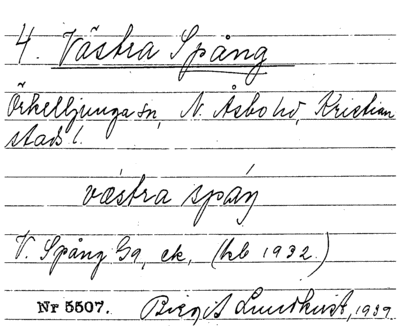 4. Västra Spång
Örkelljunga sn, N. Åsbo hd, Kristian
stads l.
västra spåŋ
V. Spång Gg, ek, (hb 1932.)
Nr 5507. Birgit Lundkvist, 1939